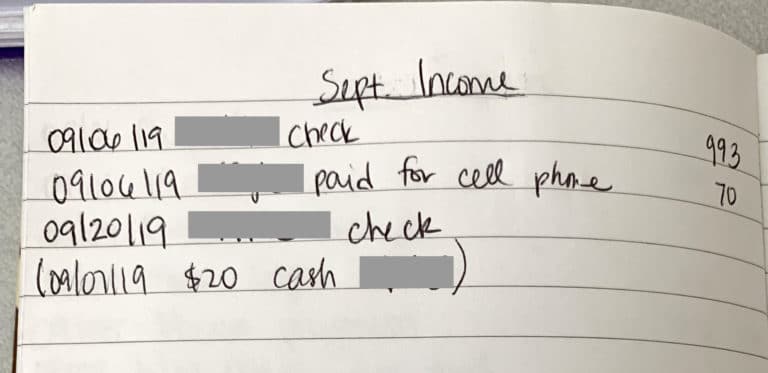 Sept. Income
09/06/19 check 993
09/06/19 paid for cell phone 70
09/20/19 check
( $20 cash )